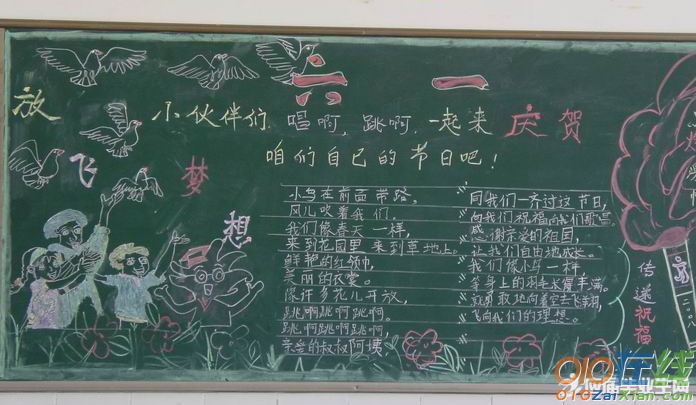 放飞梦想
六 一
小伙伴们,唱啊,跳啊,一起来庆贺
咱们自己的节日吧!
小鸟在前面带路,
风儿吹着我们,
我们像春天一样,
来到花园里 来到草地上,
鲜艳的红领巾,
美丽的衣裳,
像许多花儿开放,
跳啊跳啊跳啊,
跳啊跳啊跳啊,
亲爱的叔叔阿姨
同我们一齐讨这节日,
向我们祝福向我们歌唱,
感谢亲爱的祖国,
让我们自由地成长。
我们像小鸟一样,
等身上的羽毛长丰满,
就勇敢地向着空去飞翔,
飞向我们的理想。
传递祝福
应届毕业生网
010在线
010zaixian.com